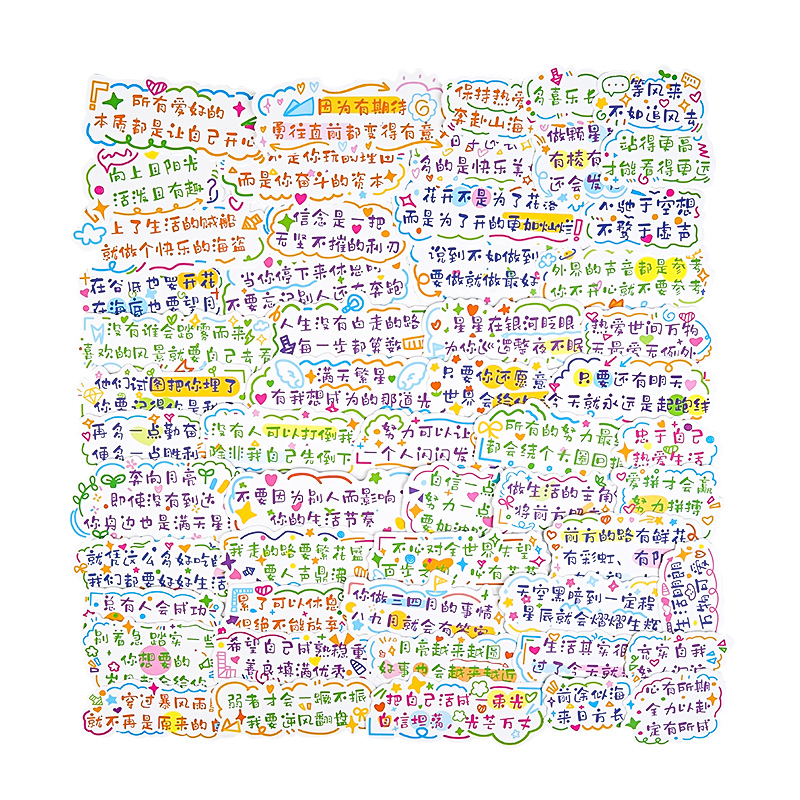 所有爱好的
本质都是让自己开心
因为有期待
勇往直前都变得有意
保持热爱
奔赴山海
多喜乐长
等风来
不如追风去
向上且阳光
活泼且有趣
而是你奋斗的资本
多的是快乐美
做颗星
有棱有
还会发
站得更高
才能看得更远
上了生活的贼船
就做个快乐的海盗
信念是一把
无坚不摧的利刃
花开不是为了花落
而是为了开的更加灿烂
心驰于空想
不骛于虚声
在谷底也要开花
在海底也要望月
当你停下来休息时
不要忘记别人还在奔跑
说到不如做到
要做就做最好
外界的声音都是参考
你不开心就不要参考
没有谁会踏雾而来
喜欢的风景就要自己去看
人生没有白走的路
每一步都算数
星星在银河眨眼
为你巡逻整夜不眠
热爱世间万物
无最爱无例外
他们试图把你埋了
你要记得你是种
满天繁星
有我想成为的那道光
只要你还愿意
世界会给你
只要还有明天
今天就永远是起跑线
再多一点勤奋
便多一点胜利
没有人可以打倒我
除非我自己先倒下
努力可以让
一个人闪闪发
所有的努力最
都会结个大圆回报
忠于自己
热爱生活
奔向月亮
即使没有到达
你身边也是满天星
不要因为别人而影响
你的生活节奏
自信一点
努力一点
做生活的主角
爱拼才会赢
努力拼搏
就凭这么多好吃的
我们都要好好生活
我走的路要繁花盛
要人声鼎沸
不必对全世界失望
前方的路有鲜花
有彩虹、有阳
生活朗朗
万物可爱
总有人会成功
累了可以休息
但绝不能放弃
你做三四月的事情
八九月就会有答案
天空黑暗到一定程
星辰就会熠熠生辉
别着急踏实一些
你想要的
希望自己成熟稳重
善良填满优秀
月亮越来越圆
好事也会越来越近
生活其实很
过了今天就
充实自我
穿过暴风雨
就不再是原来的自
弱者才会一蹶不振
我要逆风翻盘
把自己活成一束光
自信坦荡 光芒万丈
前途似海
来日方长
心有所期
全力以赴
定有所成